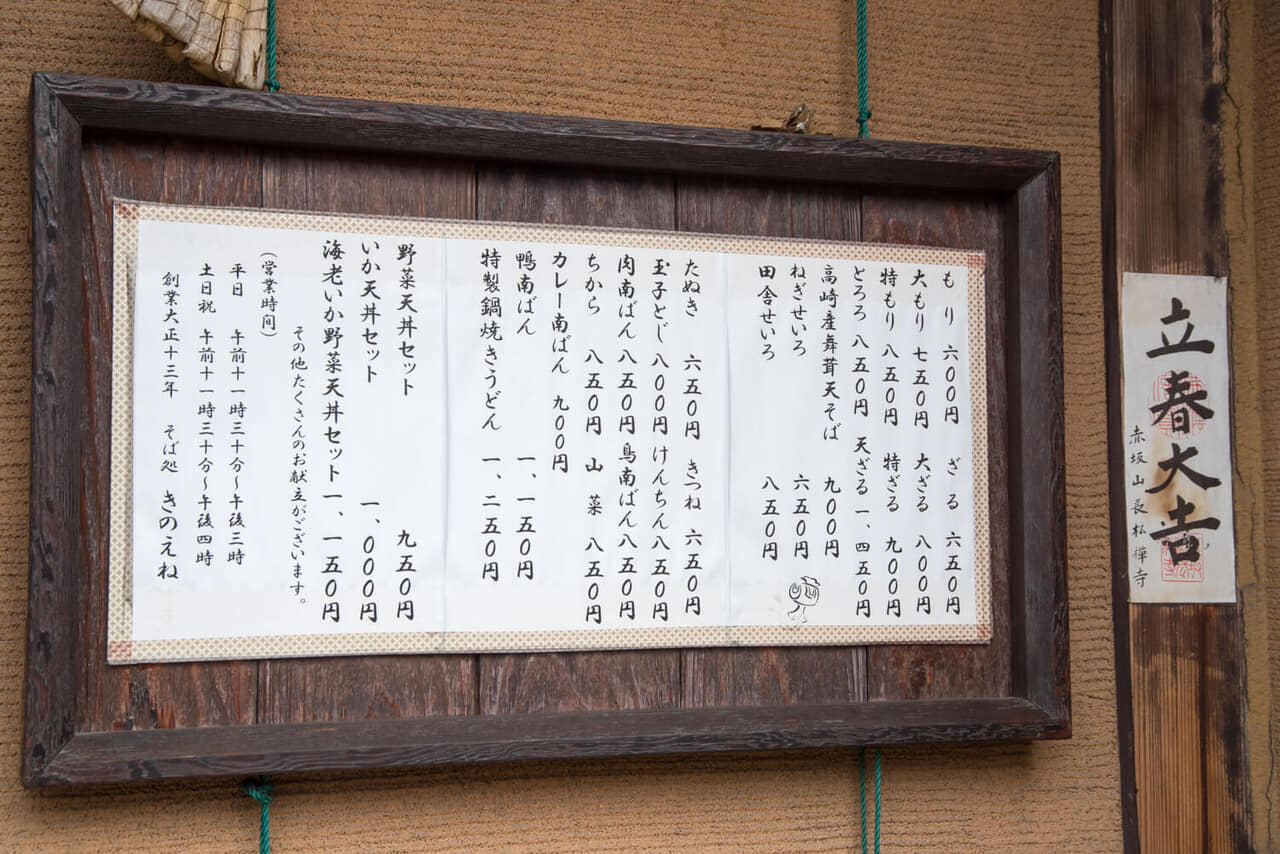 もり 六〇〇円 ざる 六五〇円
大もり 七五〇円 大ざる 八〇〇円
特もり 八五〇円 特ざる 九〇〇円
とろろ 八五〇円 天ざる 一、四五〇円
高崎産舞茸天そば 九〇〇円
ねぎせいろ 六五〇円
田舎せいろ 八五〇円
たぬき 六五〇円 きつね 六五〇円
玉子とじ 八〇〇円 けんちん 八五〇円
肉南ばん 八五〇円 鳥南ばん 八五〇円
ちから 八五〇円 山菜 八五〇円
カレー南ばん 九〇〇円
鴨南ばん 一、一五〇円
特製鍋焼きうどん 一、二五〇円
野菜天丼セット 九五〇円
いか天丼セット 一、〇〇〇円
海老いか野菜天丼セット 一、一五〇円
その他たくさんのお献立がございます。
(営業時間)
平日 午前十一時三十分〜午後三時
土日祝 午前十一時三十分〜午後四時
創業大正十三年 そば処 きのえね
立春大吉
赤坂山長松禅寺